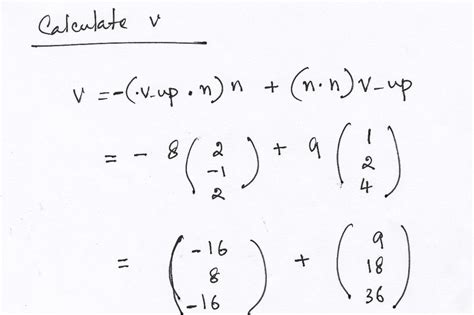 Calculate v
v = -(v-up · n) n + (n · n) v-up
= - 8 ( 2 -1 2 ) + 9 ( 1 2 4 )
= ( -16 8 -16 ) + ( 9 18 36 )